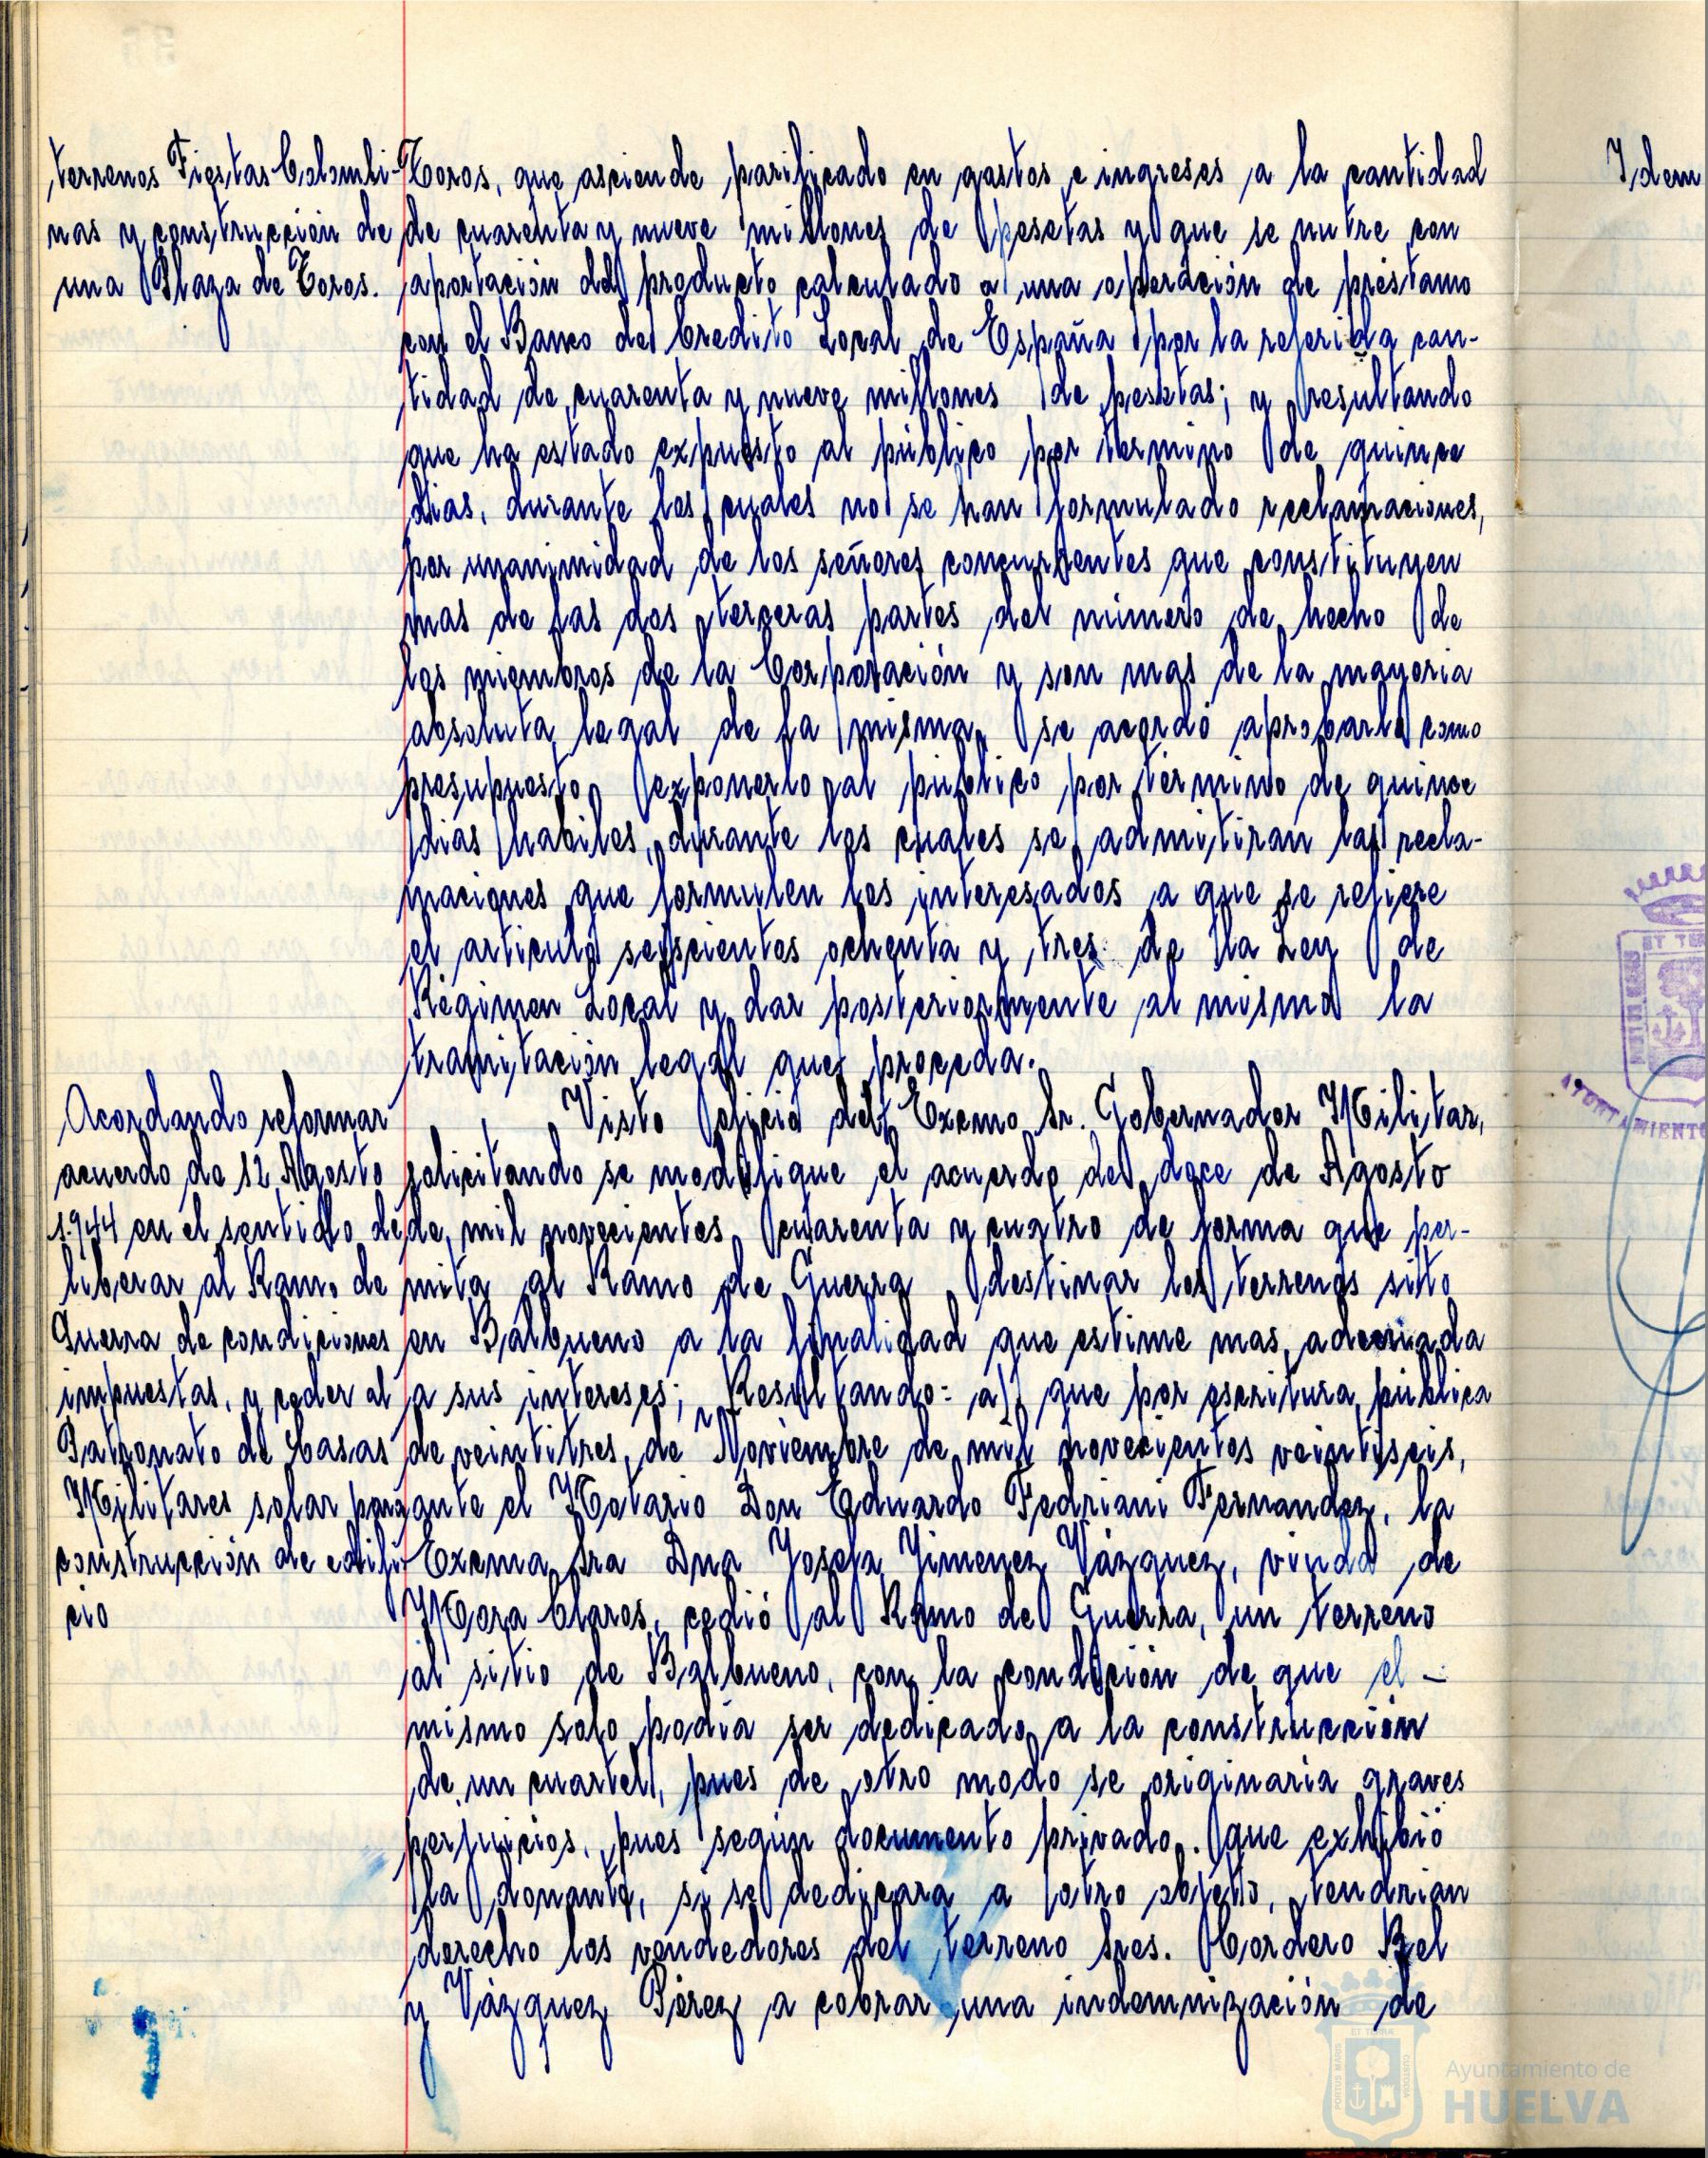 terrenos Fiestas Colombi-
nas y construcción de
una Plaza de Toros.
Toros, que asciende parificado en gastos e ingresos a la cantidad
de cuarenta y nueve millones de pesetas y que se nutre con
aportación del producto calculado a una operación de préstamo
con el Banco de Crédito Local de España por la referida can-
tidad de cuarenta y nueve millones de pesetas; y resultando
que ha estado expuesto al público por término de quince
dias, durante los cuales no se han formulado reclamaciones,
por unanimidad de los señores concurrentes que constituyen
mas de las dos terceras partes del número de hecho de
los miembros de la Corporación y son mas de la mayoria
absoluta legal de la misma, se acordó aprobarlo como
presupuesto, exponerlo al público por término de quince
dias habiles, durante los cuales se admitiran las recla-
maciones que formulen los interesados a que se refiere
el articulo seiscientos ochenta y tres de la Ley de
Régimen Local y dar posteriormente al mismo la
tramitación legal que proceda.
Acordando reformar
acuerdo de 12 Agosto
1.944 en el sentido de
liberar al Ramo de
Guerra de condiciones
impuestas, y ceder al
Patronato de Casas
Militares solar para
construcción de edifi-
cio
Visto oficio del Excmo Sr. Gobernador Militar,
solicitando se modifique el acuerdo del doce de Agosto
de mil novecientos cuarenta y cuatro de forma que per-
mita al Ramo de Guerra destinar los terrenos sito
en Balbueno a la finalidad que estime mas adecuada
a sus intereses; Resultando: a) que por escritura pública
de veintitres de Noviembre de mil novecientos veintiseis,
ante el Notario Don Eduardo Fedriani Fernandez, la
Excma Sra Dña Josefa Jimenez Vázquez, viuda de
Mora Claros, cedió al Ramo de Guerra, un terreno
al sitio de Balbueno, con la condición de que el -
mismo solo podia ser dedicado a la construcción
de un cuartel, pues de otro modo se originaria graves
perjuicios, pues según documento privado, que exhibió
la donante, si se dedicara a otro objeto, tendrian
derecho los vendedores del terreno Sres. Cordero Bel
y Vázquez Pérez a cobrar una indemnización de
Idem
ET TERRA
AYUNTAMIENTO
Ayuntamiento de
HUELVA